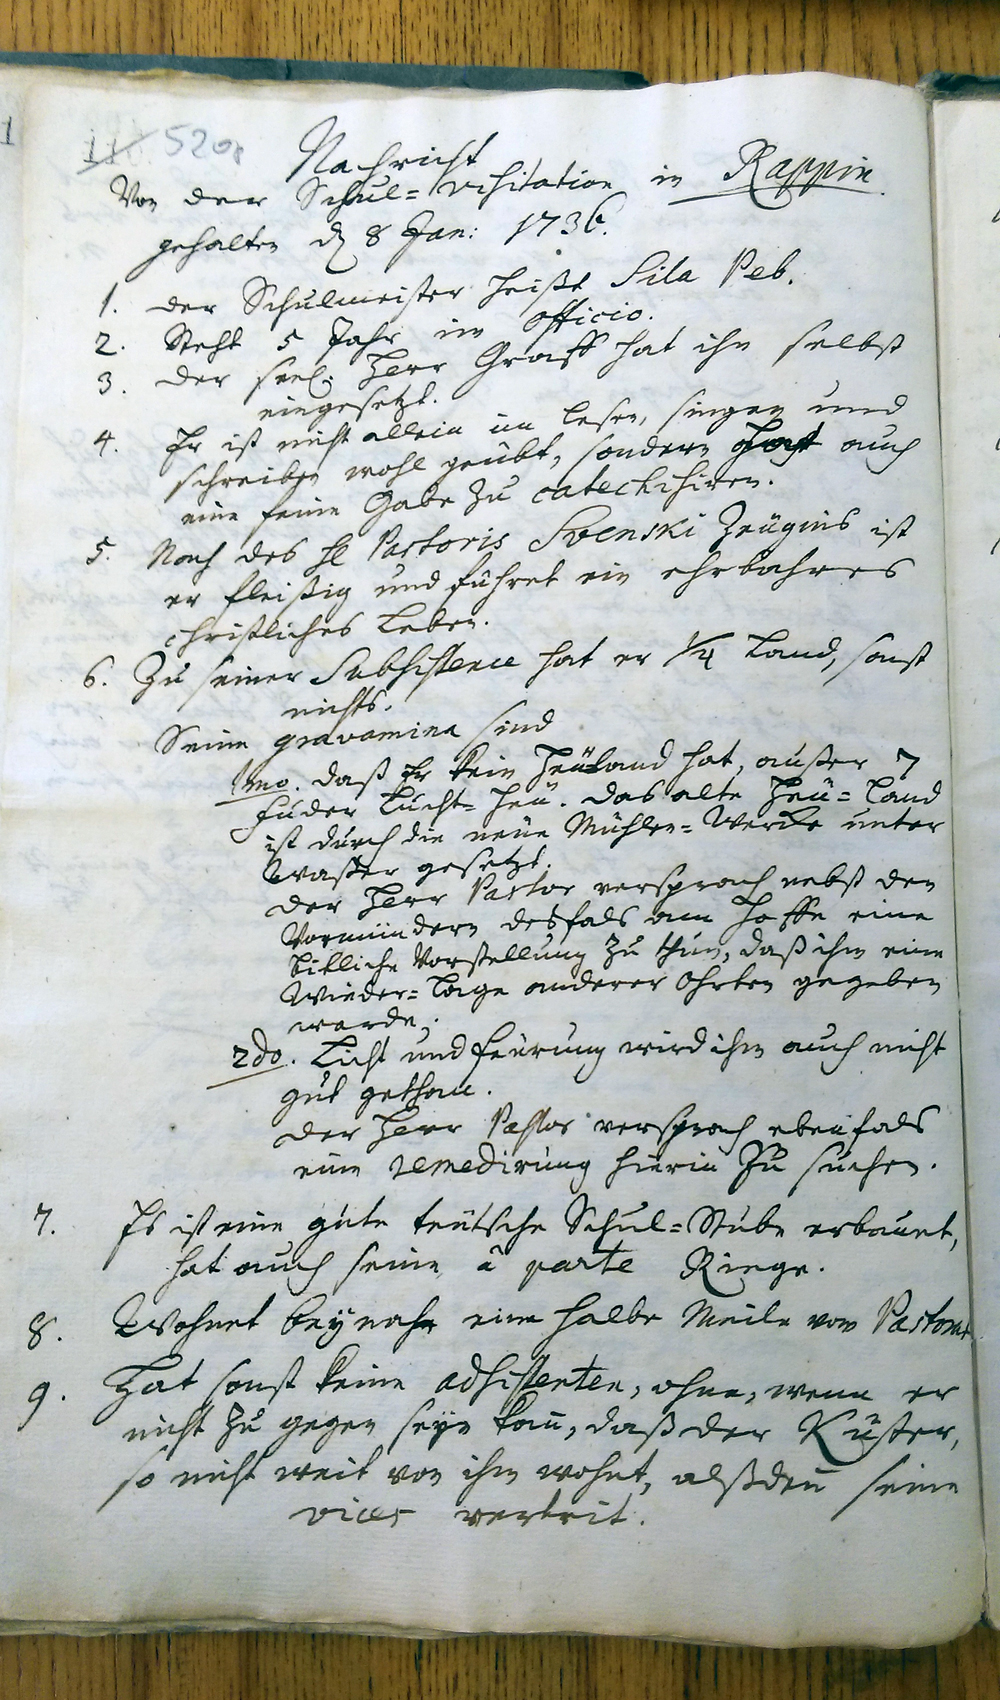 1
110. 520.
Nachricht
Von der Schul=Visitation in Rappin
gehalten d 8 Jan: 1736.
1. Der Schulmeister heißt Sila Peb.
2. Steht 5 Jahr im officio.
3. Der seel: Herr Graff hat ihn selbst
eingesetzt.
4. Er ist nicht allein im lesen, singen und
schreiben wohl geübt, sondern hat auch
eine feine Gabe zu catechisiren.
5. Nach des H Pastoris Svenski Zeügnis ist
er fleißig und führet ein ehrbahres
christliches Leben.
6. Zu seiner Subsistence hat er 1/4 Land, sonst
nichts.
Seine gravamina sind
1mo. daß Er kein Heüland hat, außer 7
Fuder Lucht=Heü. Das alte Heü=Land
ist durch die neüe Mühlen=Wercke unter
Waßer gesetzt.
Der Herr Pastor versprach nebst den
Vormündern desfals am Hoffe eine
bittliche Vorstellung zu thun, daß ihm eine
Wieder=Lage anderer Ohrten gegeben
werde.
2do. Licht und Feürung wird ihm auch nicht
gut gethan.
Der Herr Pastor versprach ebenfals
eine remedirung hierin zu suchen.
7. Es ist eine gute teütsche Schul=Stube erbauet,
hat auch seine â parte Riege.
8. Wohnet beynahe eine halbe Meile vom Pastorat
9. Hat sonst keine adsistenten, ohne, wenn er
nicht zu gegen seyn kan, daß der Küster,
so nicht weit von ihm wohnt, alßden seine
vices vertrit.